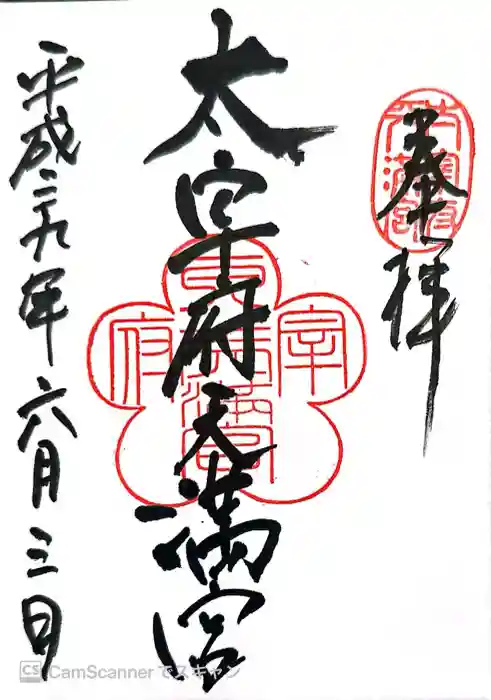 奉拝
太宰府天満宮
平成二九年六月三日
CamScannerでスキャン